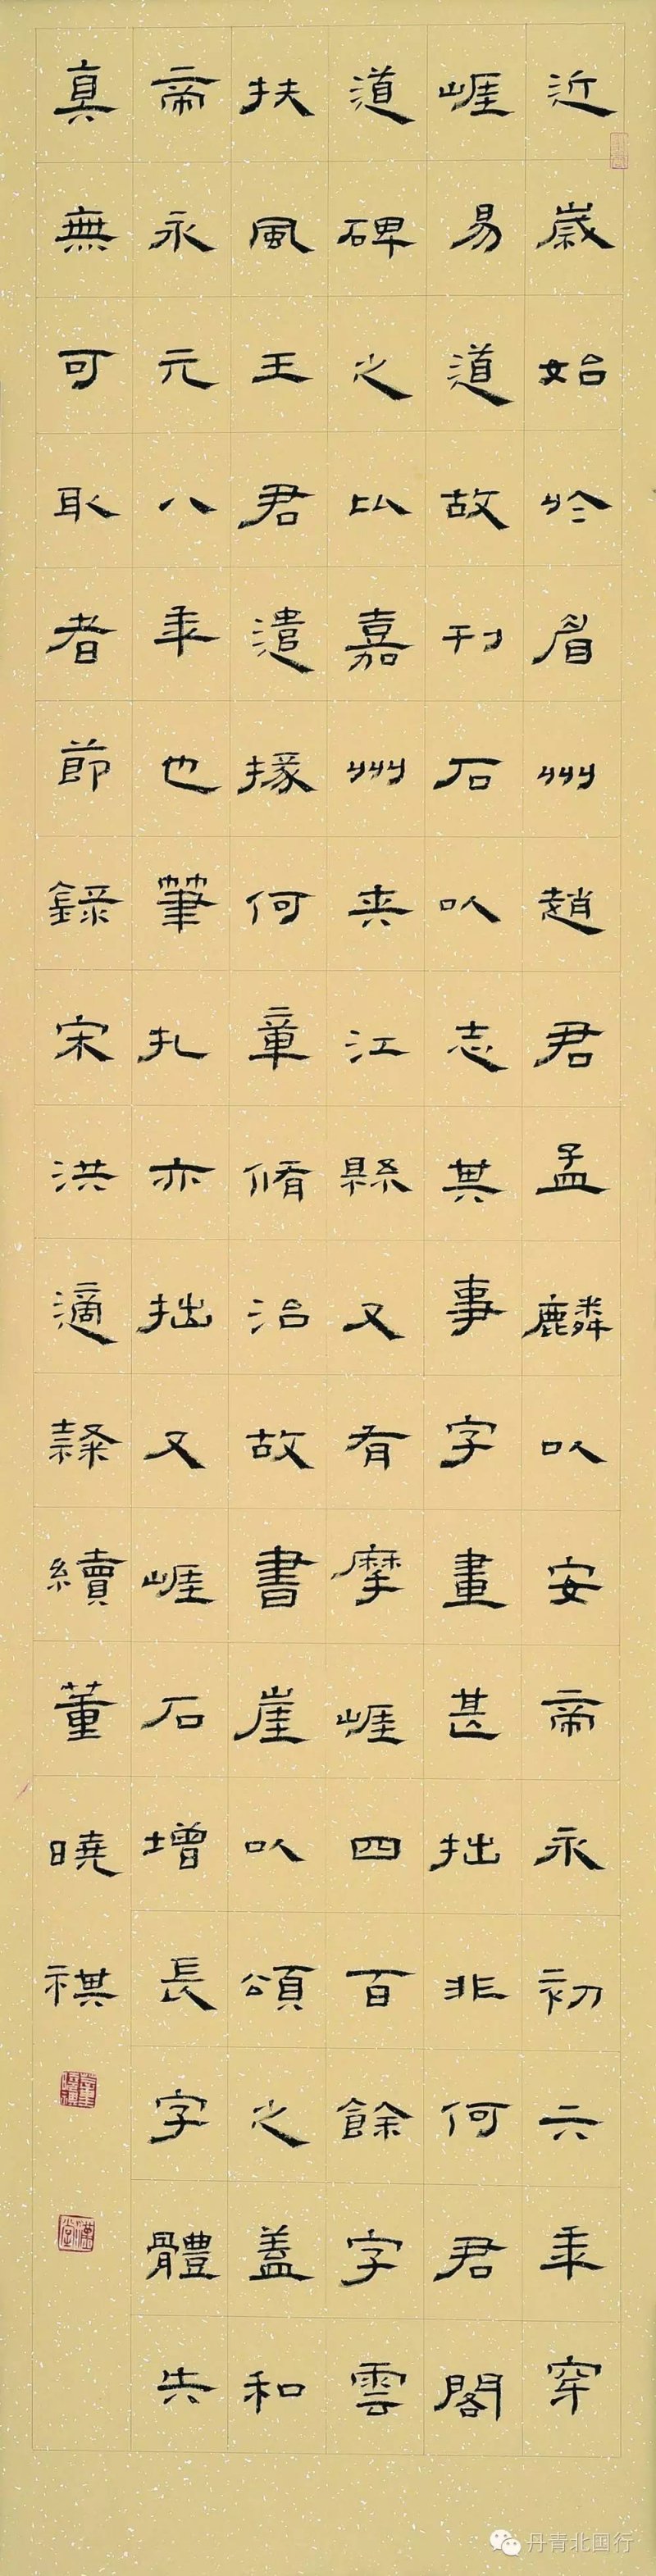 近歲始於眉州趙君孟麟以安帝永初六年穿
崕易道故刊石以志其事字畫甚拙非何君閣
道碑之比嘉州夾江縣又有摩崕四百餘字雲
扶風王君遣掾何章脩治故書崖以頌之蓋和
帝永元八年也筆札亦拙又崕石增長字體失
真無可取者節錄宋洪適隸續董曉祺
丹青北国行